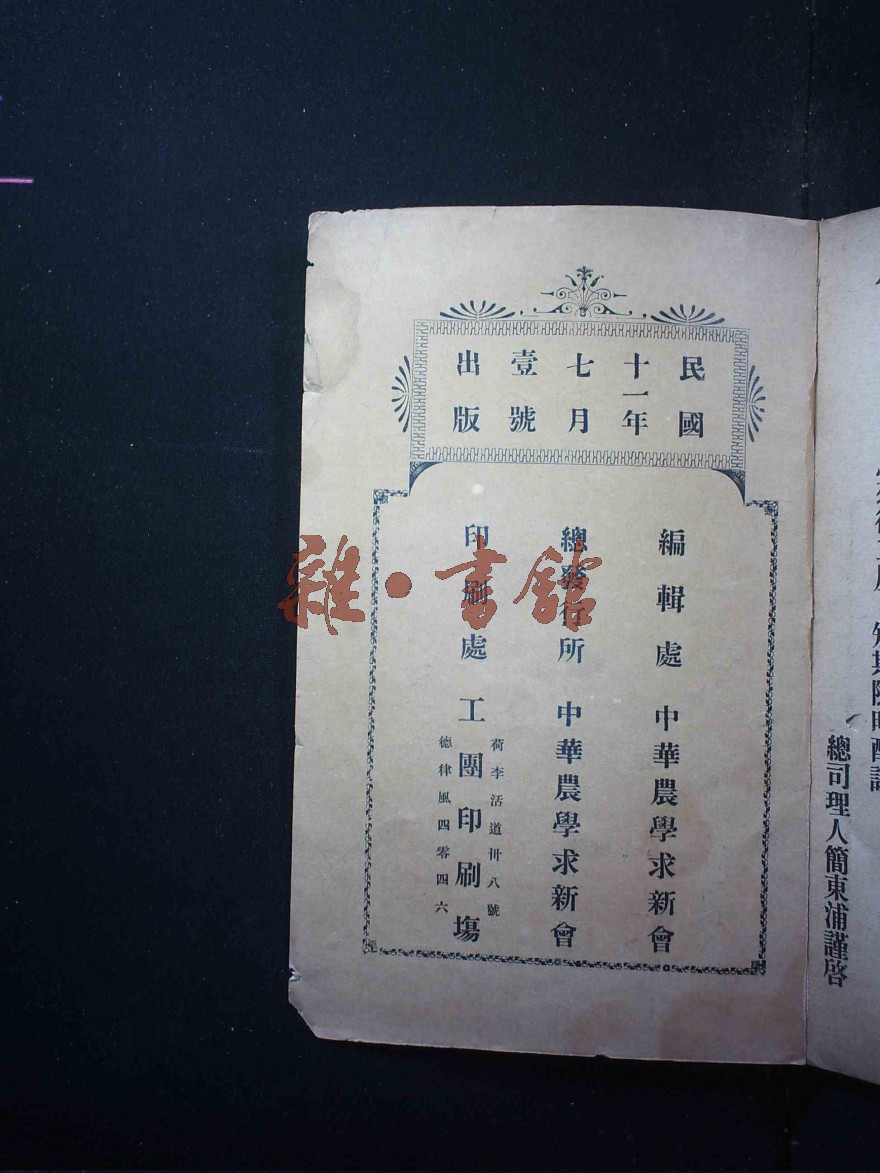 民國
十一年
七月
壹號
出版
編輯處 中華農學求新會
總發行所 中華農學求新會
印刷處 工團印刷塲
荷李活道卅八號
德律風四零四六
總司理人簡東浦謹啓
雜·書館